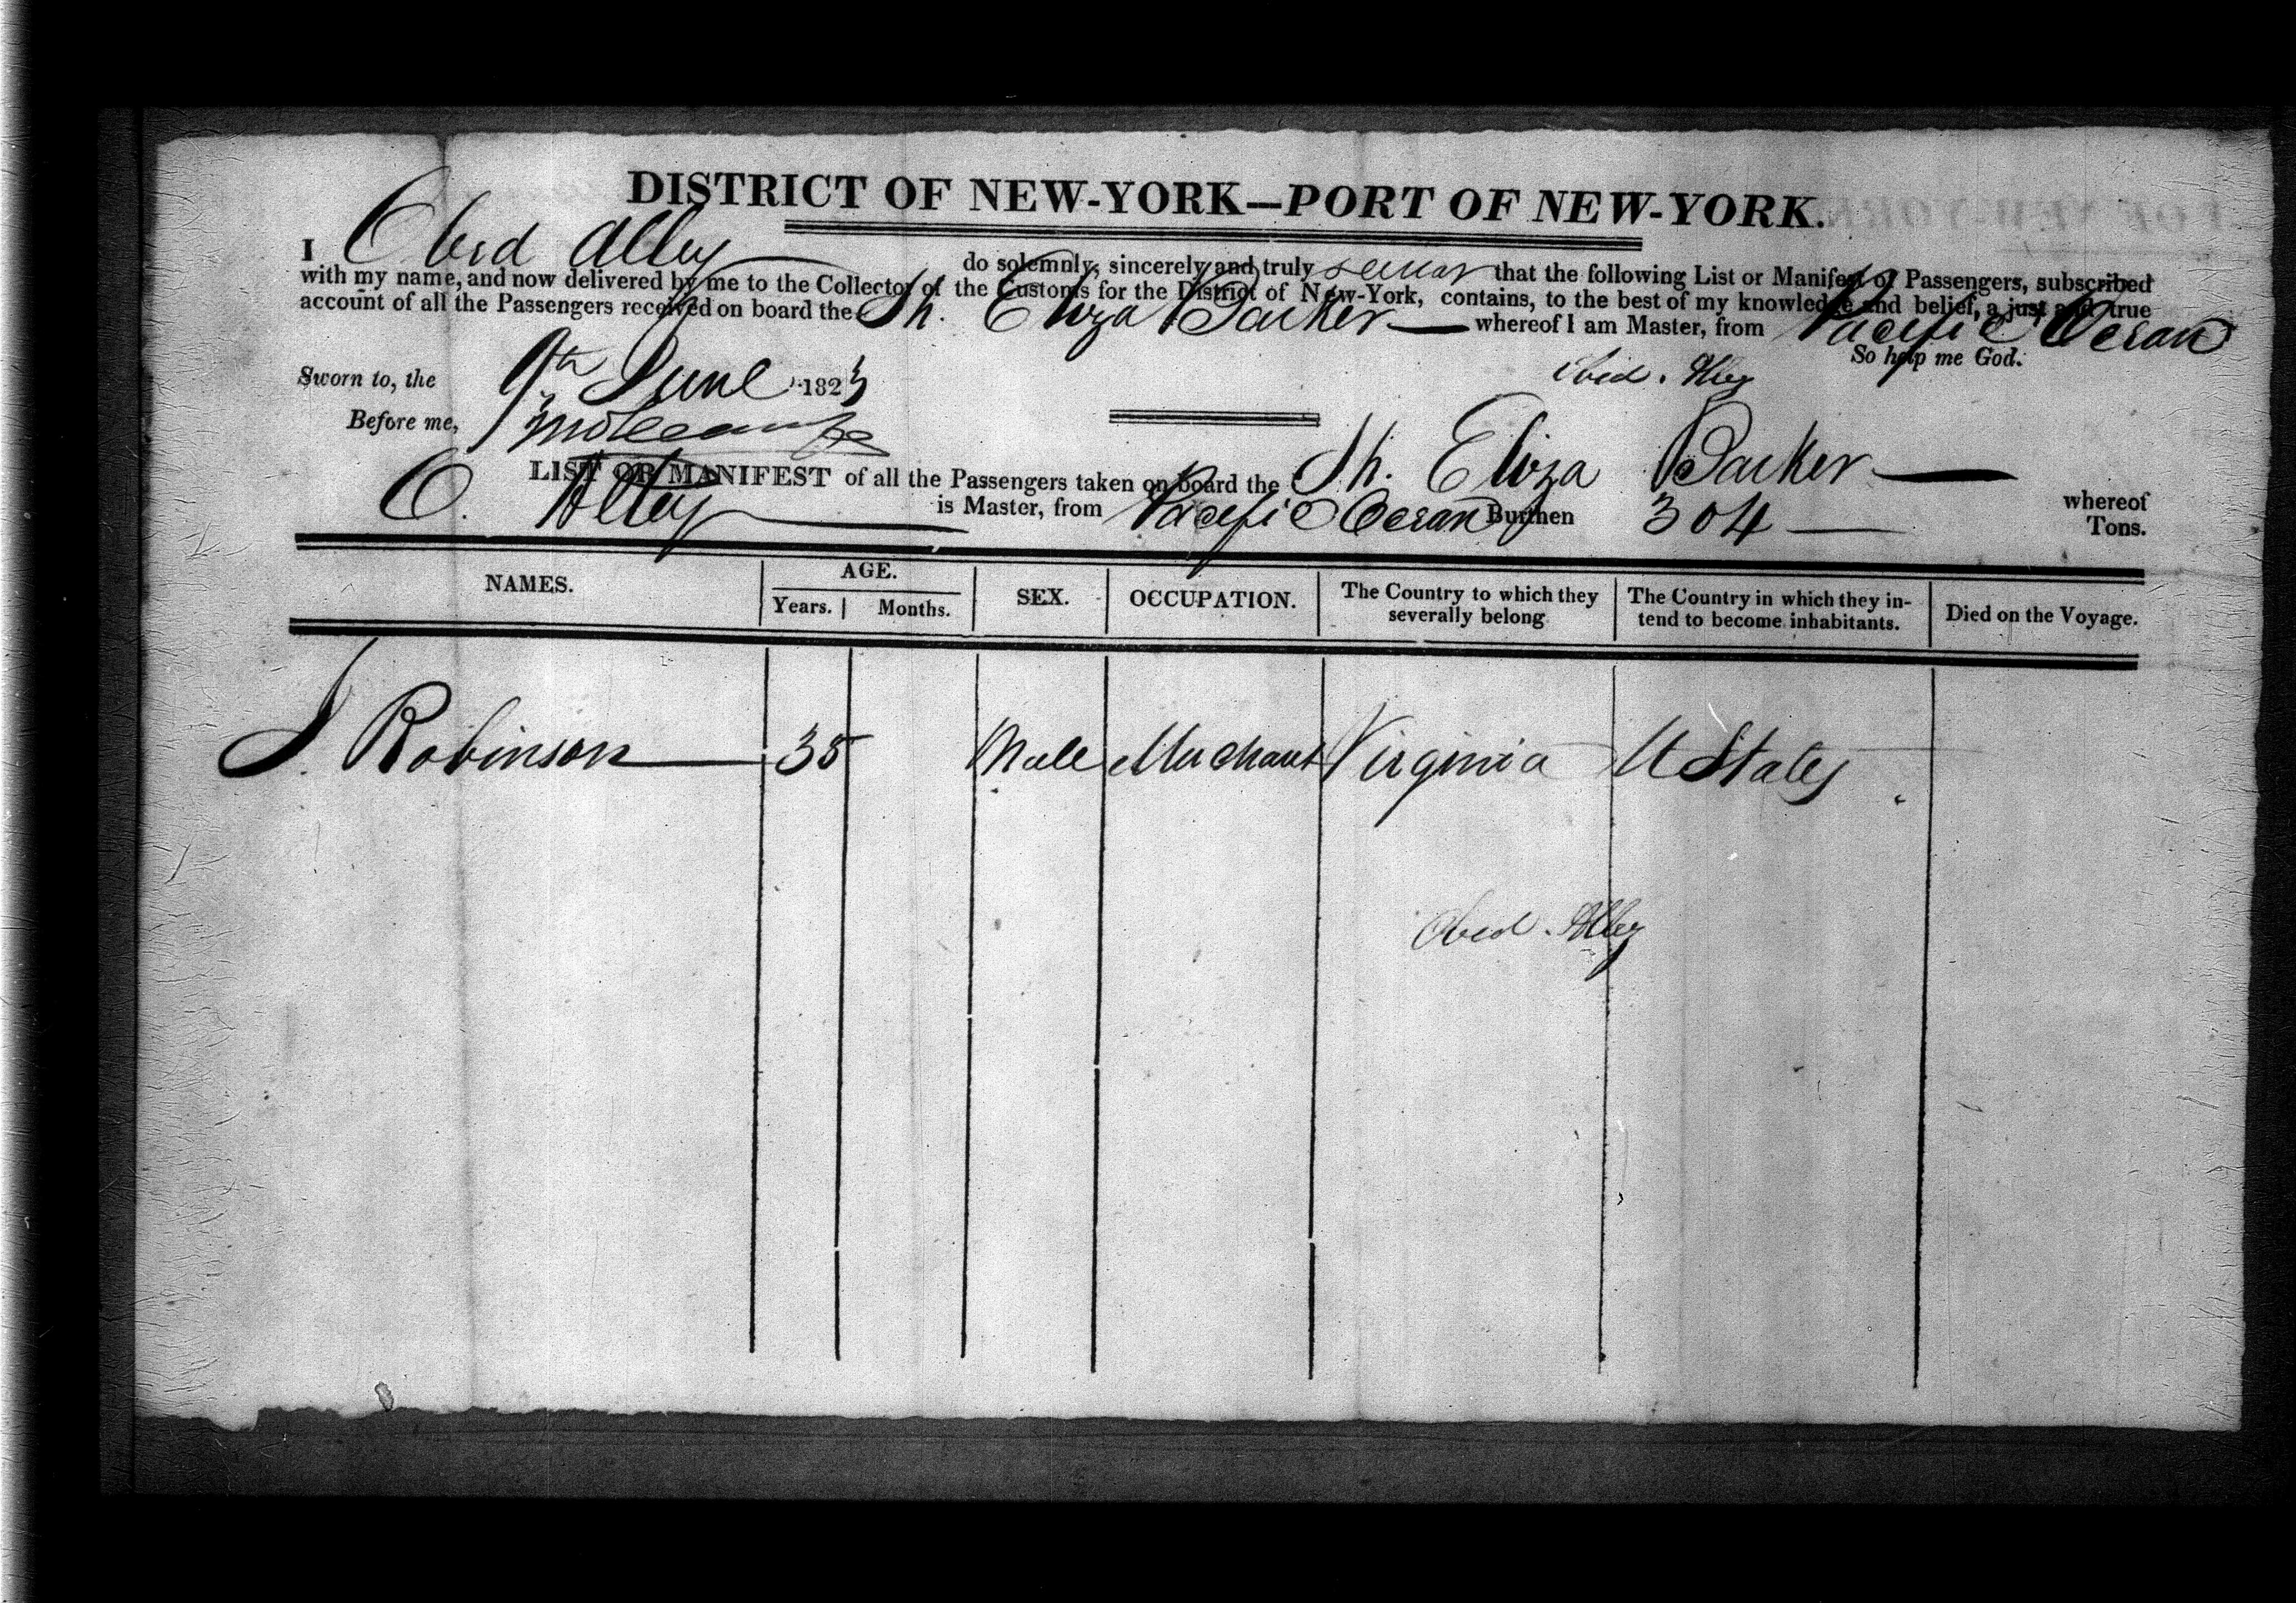 DISTRICT OF NEW-YORK—PORT OF NEW-YORK.
I Obed Alley do solemnly, sincerely and truly swear that the following List or Manifest of Passengers, subscribed
with my name, and now delivered by me to the Collector of the Customs for the District of New-York, contains, to the best of my knowledge and belief, a just and true
account of all the Passengers received on board the Sh. Eliza Barker whereof I am Master, from Pacific Ocean
So help me God.
Sworn to, the 9th June 1823 Obed. Alley
Before me,
LIST OR MANIFEST of all the Passengers taken on board the Sh. Eliza Barker whereof
O. Alley is Master, from Pacific Ocean Burthen 304 Tons.
NAMES. AGE. Years. Months. SEX. OCCUPATION. The Country to which they severally belong The Country in which they intend to become inhabitants. Died on the Voyage.
J. Robinson 35 Male Merchant Virginia U States
Obed. Alley